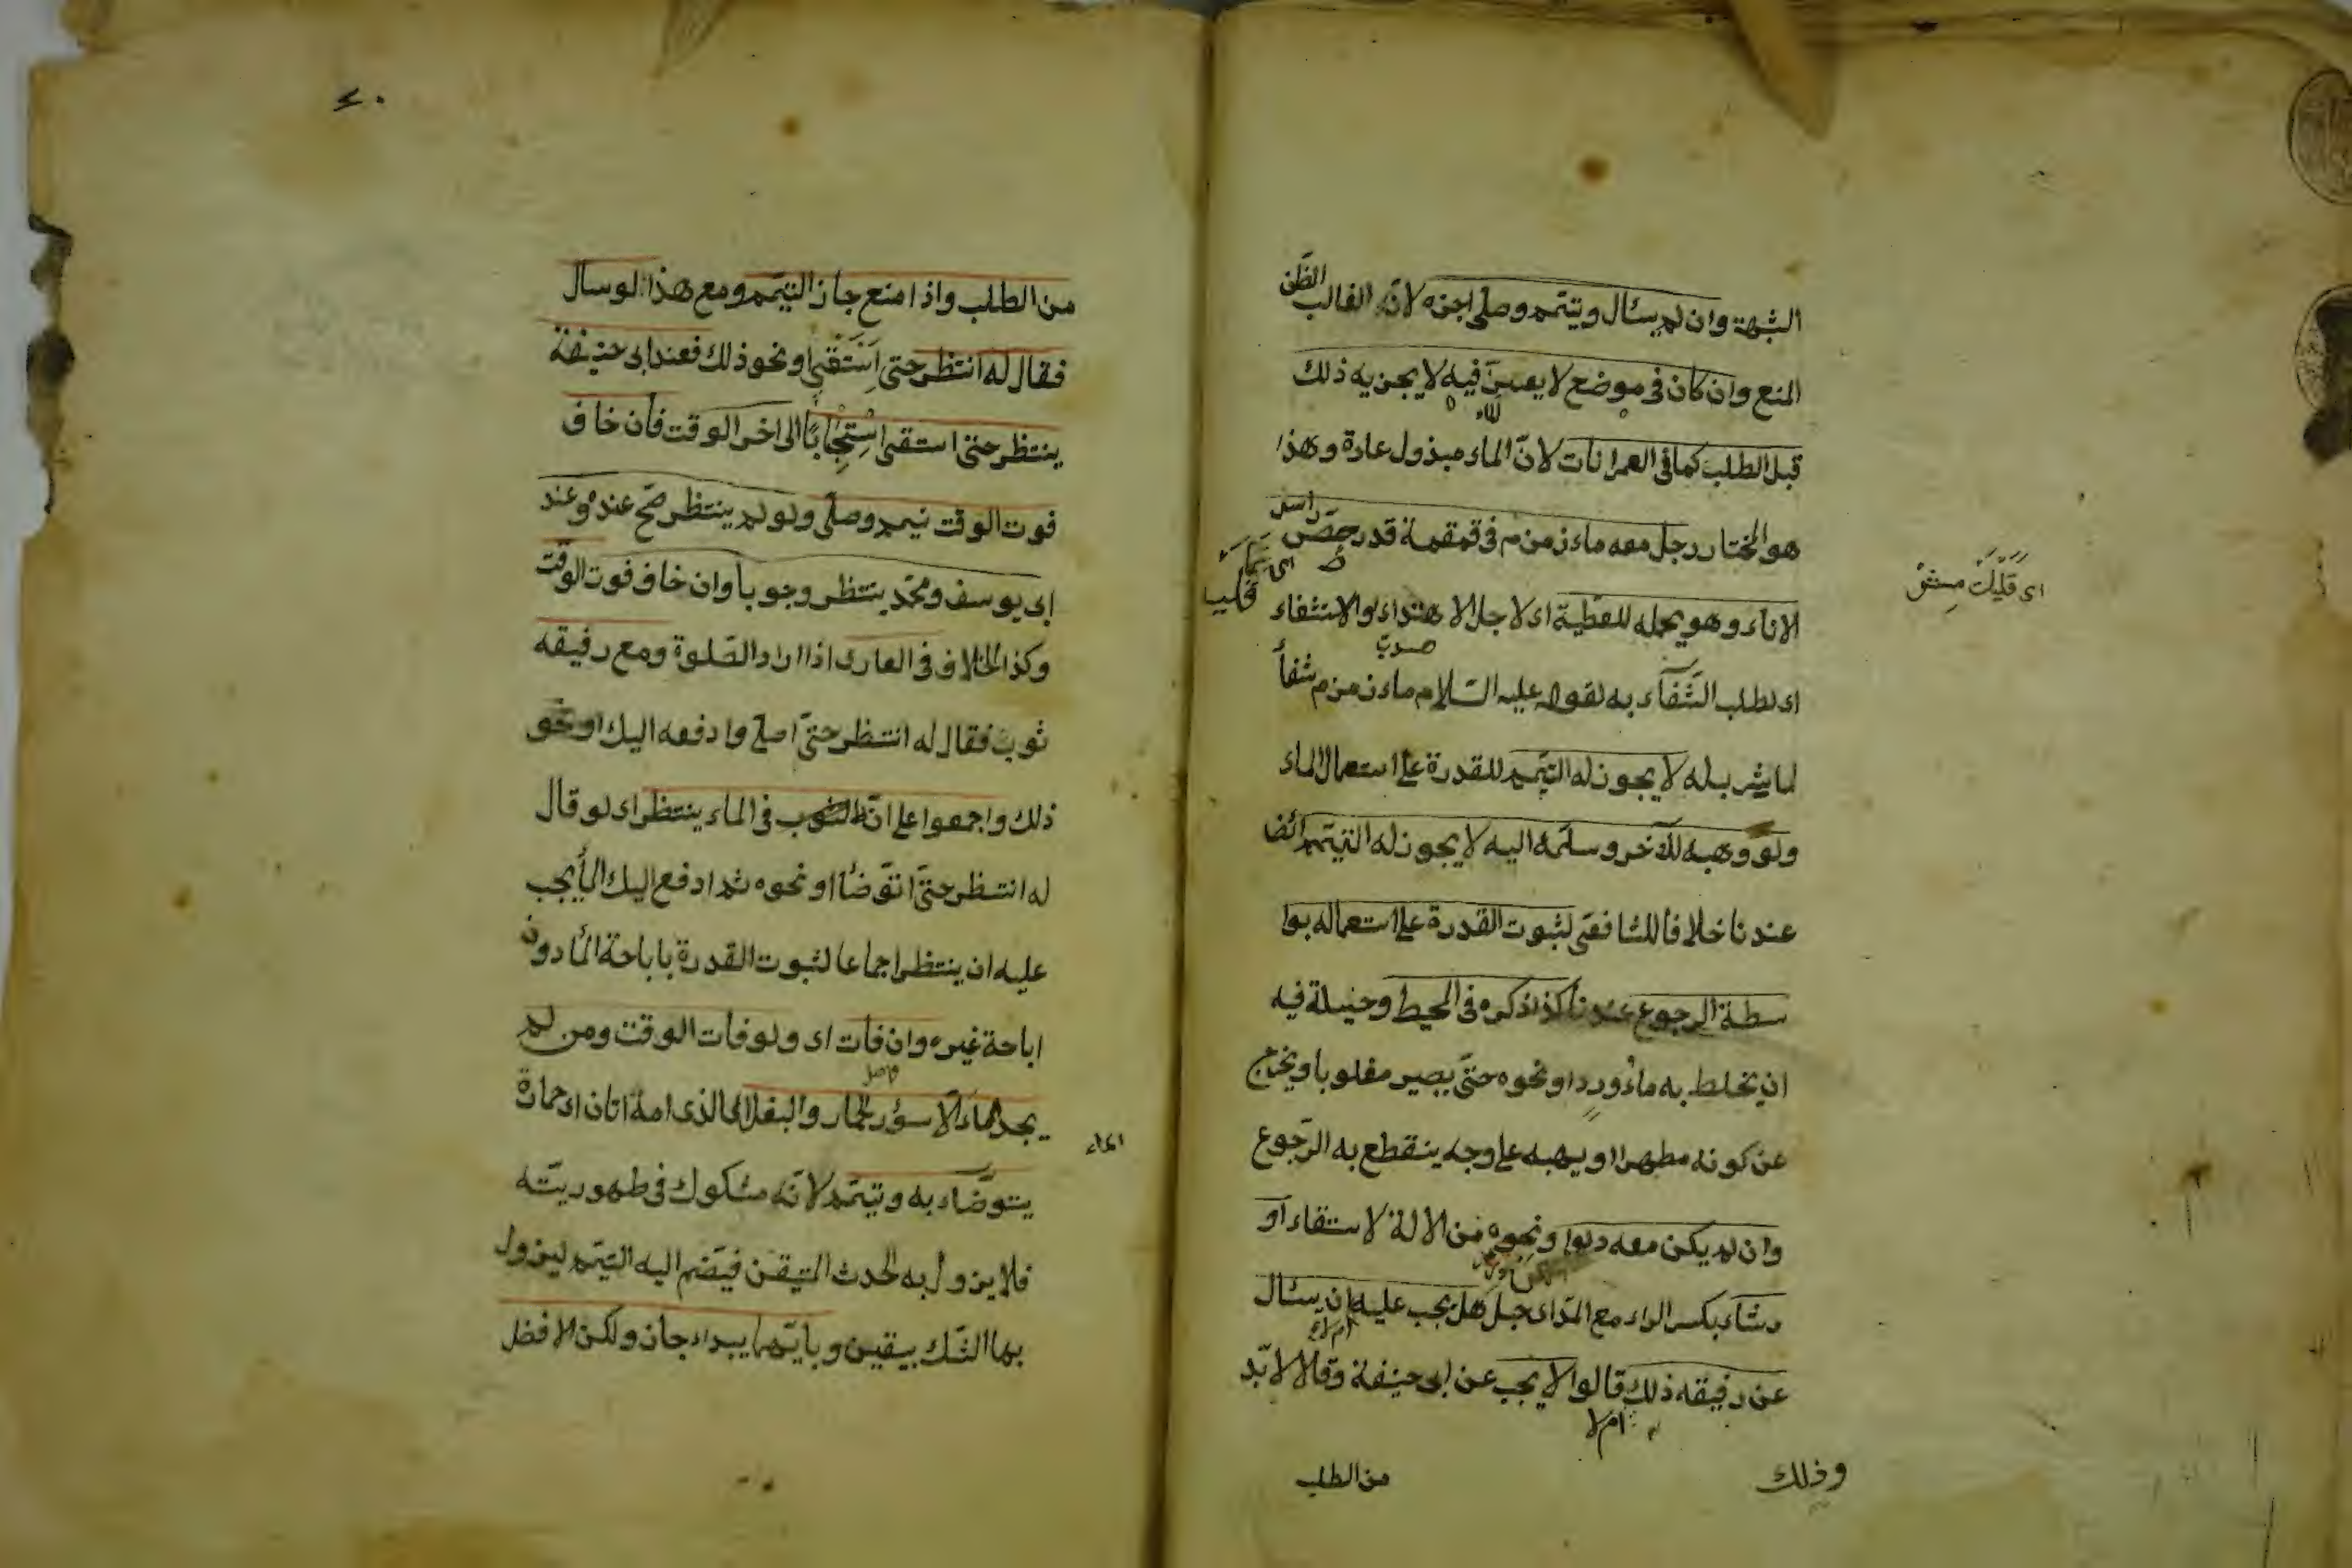 الشبهة وان لم يسئال ويتيمم وصلى اجزه لانه الغالب الظن
المنع وان كان في موضع لا يعسر فيه لا يجزيه ذلك
قبل الطلب كما في العمرانات لانّ الماء مبذول عادة وهذا
هو المختار رجل معه ماء زمزم في قمقمة قد رصّص راس
الاناء وهو يحمله للعطية اى لاجل الاهتداء او الاستشفاء
اى لطلب الشّفآء به لقوله عليه السّلام ماء زمزم شفأ
لما شرب له لا يجوز له التيمّم للقدرة على استعمال الماء
ولو وهبه للآخر وسلّمه اليه لا يجوز له التيمّم ائضا
عندنا خلافا للشافعى لثبوت القدرة على استعماله بوا
سطة الرجوع عندنا كذا ذكره فى المحيط وحيلة فيه
ان يخلط به ماء ورد او نحوه حتّى يصير مغلوبا ويخرج
عن كونه مطهرا او يهبه على وجه ينقطع به الرّجوع
وان لم يكن معه دلوا ونحوه من الالة لاستقاء او
رشاء بكسر الراء مع المدّ اى حبل هل يجب عليه ان يسئال
ام لا
عن رفيقه ذلك قالوا لا يجب عن ابى حنيفة وقالا لا بدّ
ام لا
وذلك
من الطلب
٤٠
من الطلب واذا منع جاز التيمّم ومع هذا لو سال
فقال له انتظر حتى استقى او نحو ذلك فعند ابى حنيفة
ينتظر حتى استقى استحبابًا الى اخر الوقت فأن خاف
فوت الوقت تيمم وصلّى ولو لم ينتظر صحّ عنده وعند
ابى يوسف ومحمّد ينتظر وجوبا وان خاف فوت الوقت
وكذا الخلاف فى العارى اذا اراد الصّلوة ومع رفيقه
ثوب فقال له انتظر حتّى اصلى وادفعه اليك او نحو
ذلك واجمعوا على انّه فى الماء ينتظر اى لو قال
له انتظر حتّى اتوّضأ او نحوه ثم ادفع اليك المأ يجب
عليه ان ينتظر اجماعا لثبوت القدرة باباحة المأ دون
اباحة غيره وان فات اى ولو فات الوقت ومن لم
يجد ماء الّا سؤر الحمار والبغل الذى امه اتان اى حمارة
الماء
يتوضّاء به وتيمّم لانّه مشكوك فى طهوريّته
فلا يزول به الحدث المتيقن فيضم اليه التيمّم ليزول
بهما الشّك بيقين وبايّهما يبداء جاز ولكن الافضل